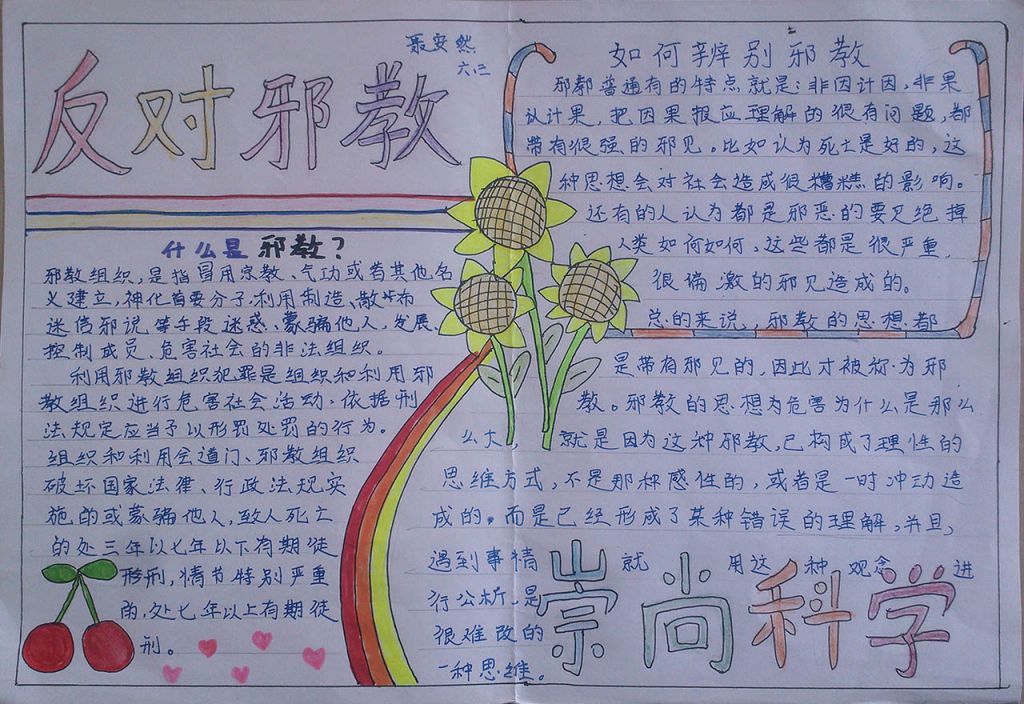 反对邪教
聂安然
六.二
什么是邪教?
邪教组织,是指冒用宗教、气功或者其他名
义建立,神化首要分子,利用制造、散布
迷信邪说等手段迷惑、蒙骗他人,发展、
控制成员、危害社会的非法组织。
利用邪教组织犯罪是组织和利用邪
教组织进行危害社会活动,依据刑
法规定应当予以形罚处罚的行为。
组织和利用会道门、邪教组织
破坏国家法律、行政法规实
施的或蒙骗他人,致人死亡
的处三年以七年以下有期徒
形刑,情节特别严重
的,处七年以上有期徒
刑。
如何辨别邪教
邪都普通有的特点就是:非因计因,非果
认计果,把因果报应理解的很有问题,都
带有很强的邪见。比如认为死亡是好的,这
种思想会对社会造成很糟糕的影响。
还有的人认为都是邪恶的要见绝掉
人类如何如何,这些都是很严重,
很偏激的邪见造成的。
总的来说,邪教的思想都
是带有邪见的,因此才被称为邪
教。邪教的思想为危害为什么是那么
么大,就是因为这种邪教,已构成了理性的
思维方式,不是那种感性的,或者是一时冲动造
成的。而是已经形成了某种错误的理解,并且,
遇到事情就用这种观念进
行公析,是
很难改的
一种思维。
崇尚科学